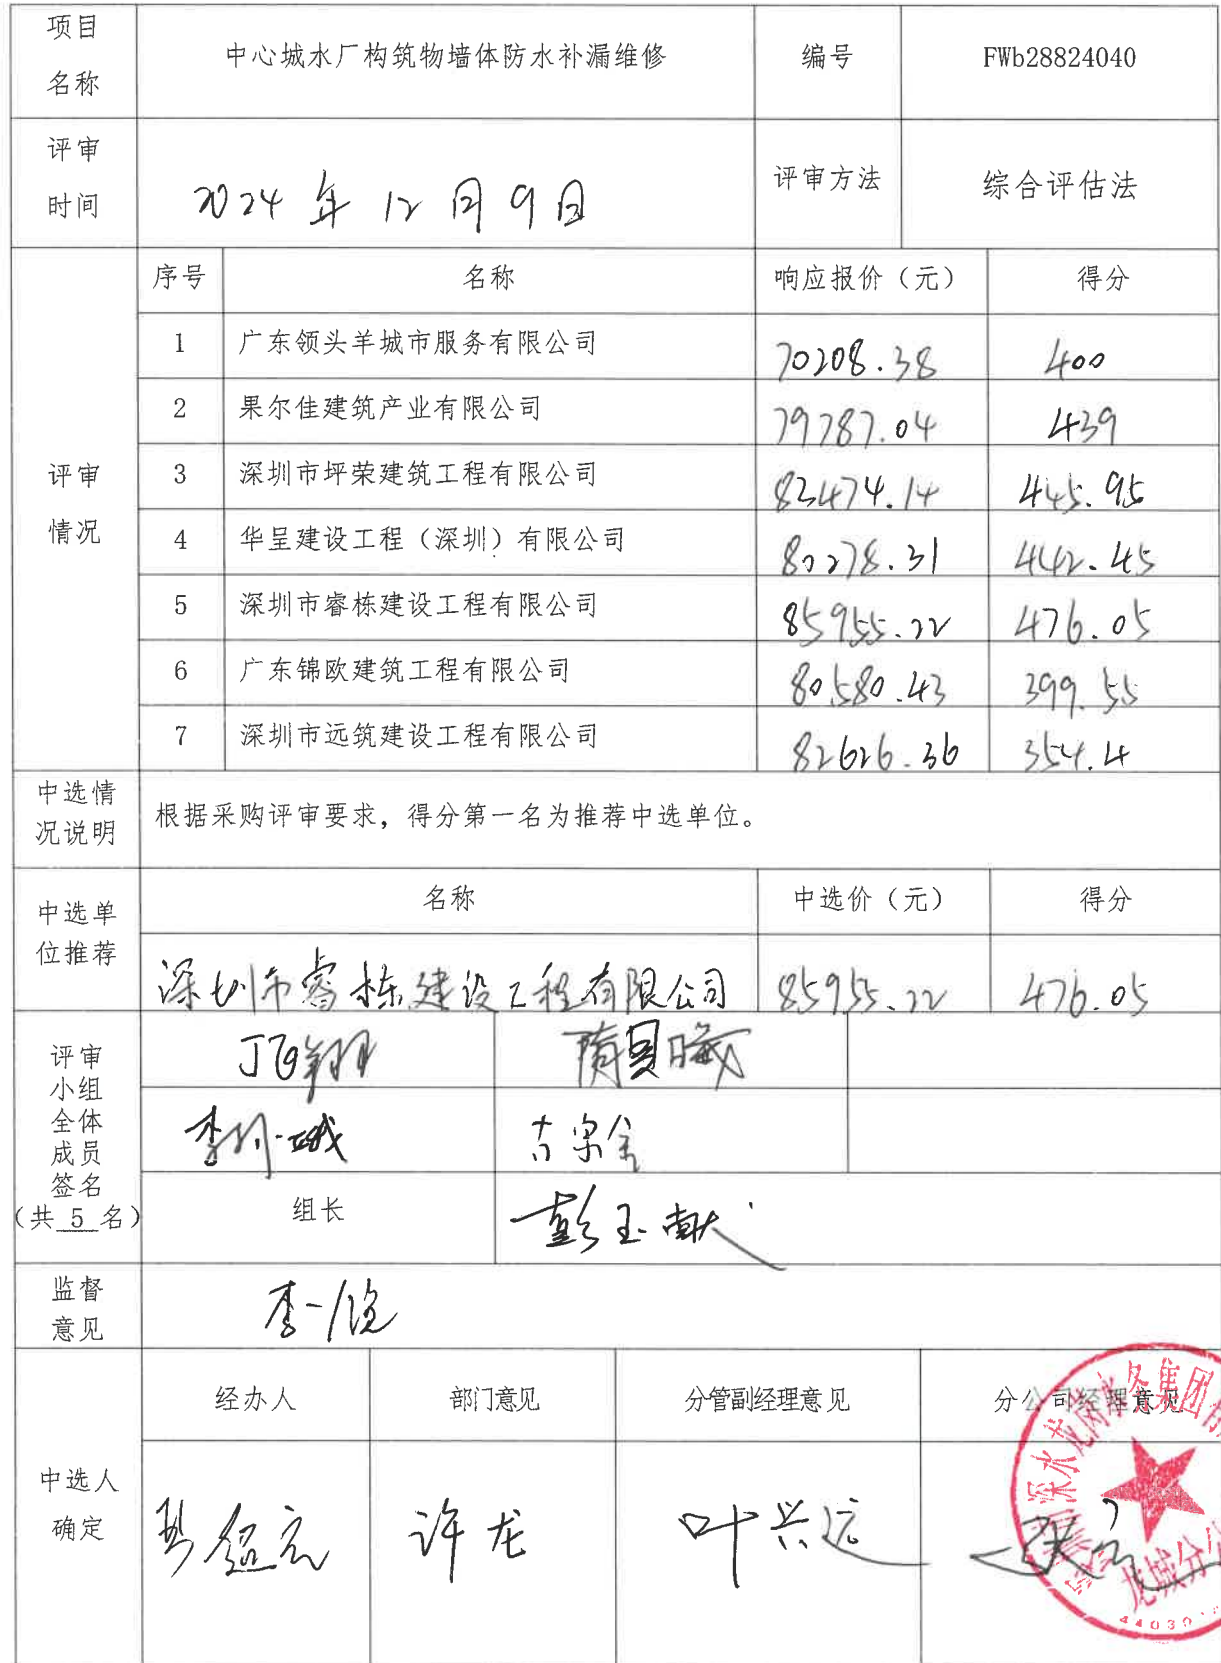 项目
名称
中心城水厂构筑物墙体防水补漏维修
编号
FWb28824040
评审
时间
2024 年 12 月 9 日
评审方法
综合评估法
评审
情况
序号
名称
响应报价（元）
得分
1
广东领头羊城市服务有限公司
70208.38
400
2
果尔佳建筑产业有限公司
79787.04
439
3
深圳市坪荣建筑工程有限公司
82474.14
445.95
4
华呈建设工程（深圳）有限公司
80278.31
442.45
5
深圳市睿栋建设工程有限公司
85955.22
476.05
6
广东锦欧建筑工程有限公司
80580.43
399.55
7
深圳市远筑建设工程有限公司
82626.36
354.4
中选情
况说明
根据采购评审要求，得分第一名为推荐中选单位。
中选单
位推荐
名称
中选价（元）
得分
深圳市睿栋建设工程有限公司
85955.22
476.05
评审
小组
全体
成员
签名
（共 5 名）
组长
彭玉献
监督
意见
中选人
确定
经办人
部门意见
分管副经理意见
分公司经理意见
许龙
叶兴远
龙城分公
44030